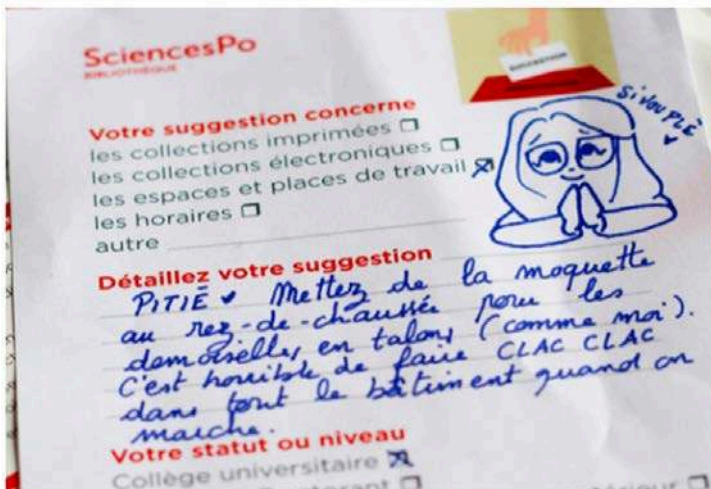 SciencesPo
BIBLIOTHÈQUE
SUGGESTION
Votre suggestion concerne
les collections imprimées
les collections électroniques
les espaces et places de travail
les horaires
autre
SiVOUPLÈ
Détaillez votre suggestion
PITIÉ Mettez de la moquette
au rez-de-chaussée pour les
demoiselles en talons (comme moi).
C'est horrible de faire CLAC CLAC
dans tout le bâtiment quand on
marche.
Votre statut ou niveau
Collège universitaire